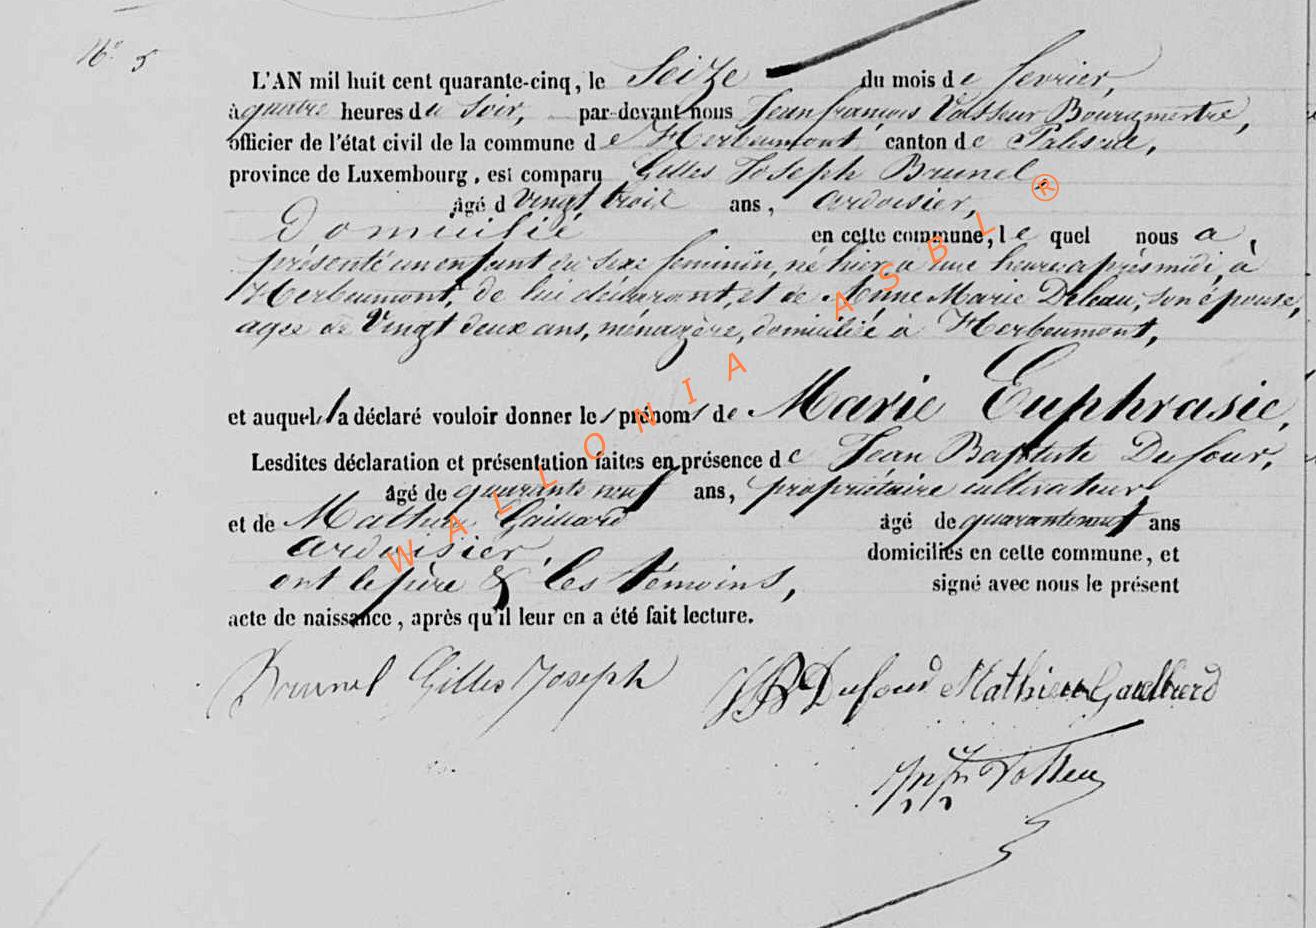 N° 5
L'AN mil huit cent quarante-cinq, le Seize du mois de fevrier,
à quatre heures du Soir, par-devant nous Jean françois Vasseur Bourgmestre,
officier de l'état civil de la commune de Herbeumont canton de Paliseul,
province de Luxembourg, est comparu Gilles Joseph Brunel,
âgé d Vingt trois ans, ardoisier,
Domicilié en cette commune, le quel nous a,
présenté un enfant du sexe feminin, né hier, a une heure après midi, à
Herbeumont, de lui déclarant, et de Anne Marie Deleau, son épouse,
agée de Vingt deux ans, ménagère, domiciliée à Herbeumont,
et auquel il a déclaré vouloir donner les prénoms de Marie Euphrasie,
Lesdites déclaration et présentation faites en présence de Jean Baptiste Dufour,
âgé de quarante neuf ans, propriétaire cultivateur
et de Mathieu Gaillard âgé de quarante neuf ans
ardoisier, domiciliés en cette commune, et
ont le père & les témoins, signé avec nous le présent
acte de naissance, après qu'il leur en a été fait lecture.
Brunel Gilles Joseph JB Dufour Mathieu
WALLONIA ASBL ®